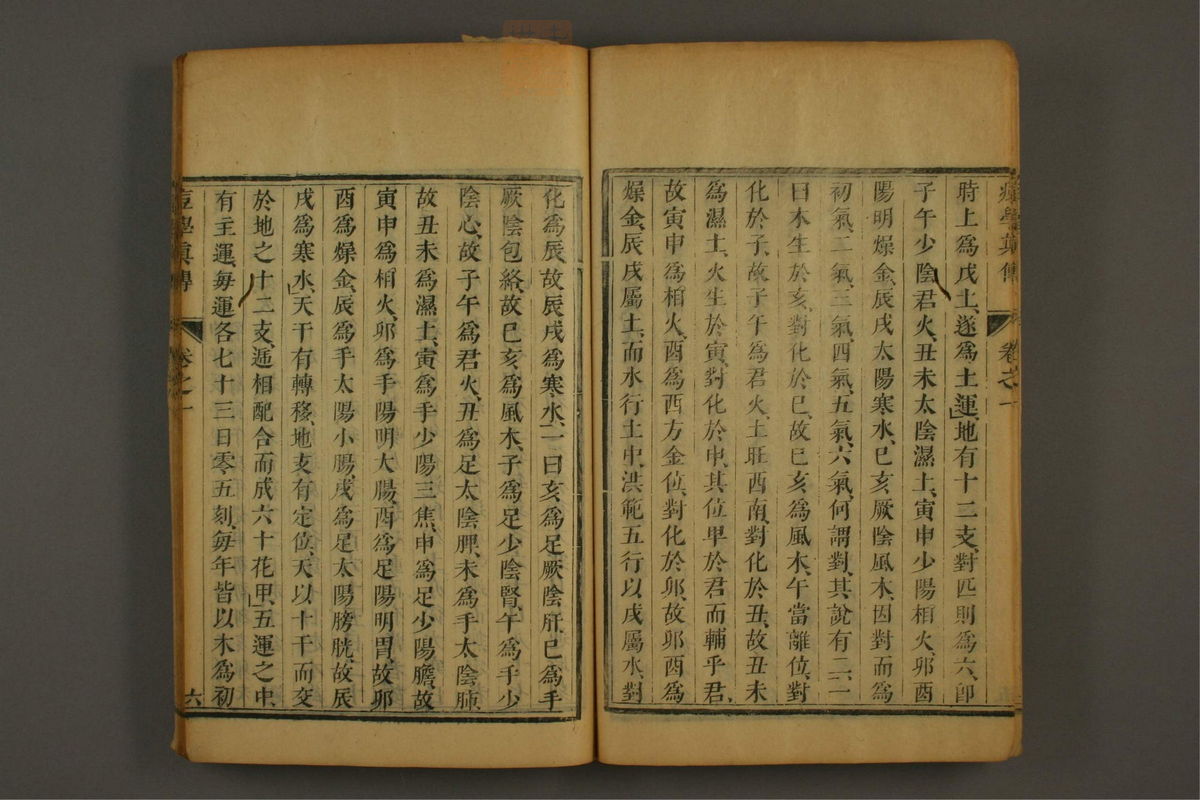 時上爲戊土、遂爲土運、地有十二支、對匹則爲六、卽
子午少陰君火、丑未太陰濕土、寅申少陽相火、卯酉
陽明燥金、辰戌太陽寒水、巳亥厥陰風木、因對而爲
初氣、二氣、三氣、四氣、五氣、六氣、何謂對、其說有二、一
曰木生於亥、對化於巳、故巳亥爲風木、午當離位、對
化於子、故子午爲君火、土旺西南、對化於丑、故丑未
爲濕土、火生於寅、對化於申、其位卑於君而輔乎君、
故寅申爲相火、酉爲西方金位、對化於卯、故卯酉爲
燥金、辰戌屬土、而水行土中、洪範五行以戌屬水、對
化爲辰、故辰戌爲寒水、一曰亥爲足厥陰肝、巳爲手
厥陰包絡、故巳亥爲風木、子爲足少陰腎、午爲手少
陰心、故子午爲君火、丑爲足太陰脾、未爲手太陰肺、
故丑未爲濕土、寅爲手少陽三焦、申爲足少陽膽、故
寅申爲相火、卯爲手陽明大腸、酉爲足陽明胃、故卯
酉爲燥金、辰爲手太陽小腸、戌爲足太陽膀胱、故辰
戌爲寒水、天干有轉移、地支有定位、天以十干而交
於地之十二支、遞相配合而成六十花甲、五運之中、
有主運、每運各七十三日零五刻、每年皆以木爲初
卷之一
六